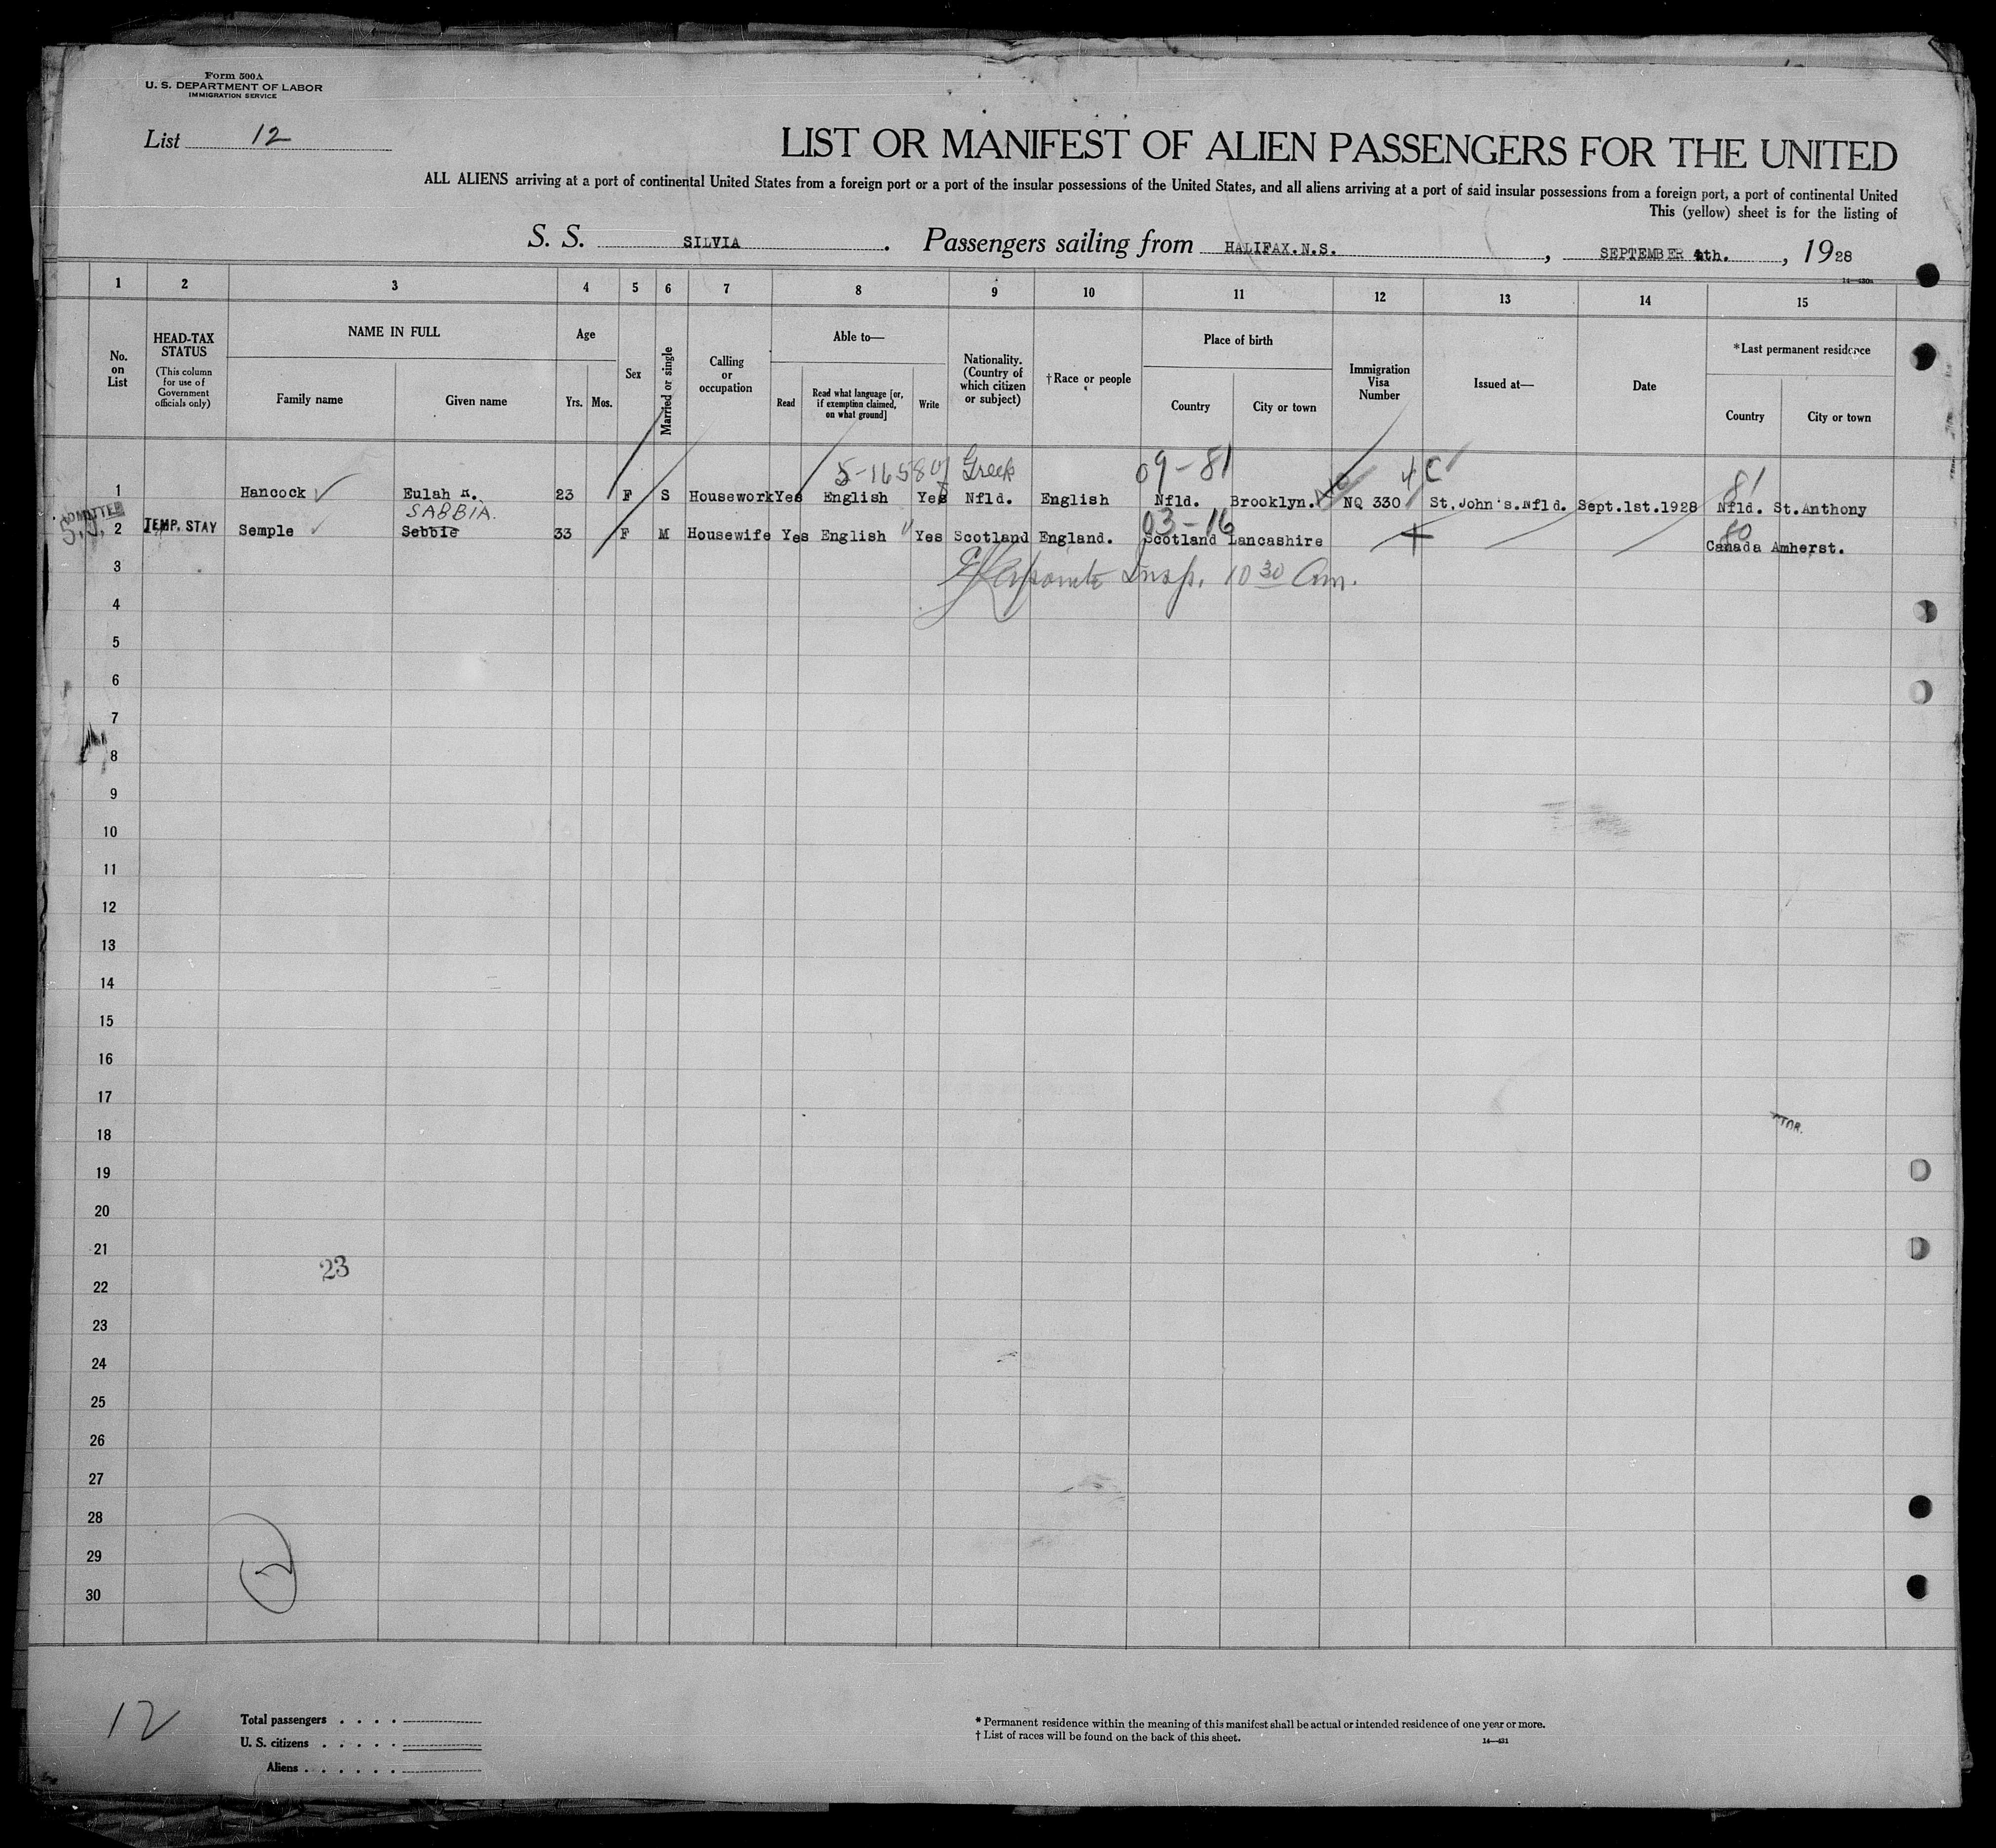 Form 500A
U. S. DEPARTMENT OF LABOR
IMMIGRATION SERVICE
List 12
LIST OR MANIFEST OF ALIEN PASSENGERS FOR THE UNITED
ALL ALIENS arriving at a port of continental United States from a foreign port or a port of the insular possessions of the United States, and all aliens arriving at a port of said insular possessions from a foreign port, a port of continental United
This (yellow) sheet is for the listing of
S. S. SILVIA . Passengers sailing from HALIFAX.N.S. , SEPTEMBER 4th. , 1928
1 2 3 4 5 6 7 8 9 10 11 12 13 14 15
No. on List
HEAD-TAX STATUS (This column for use of Government officials only)
NAME IN FULL
Family name
Given name
Age
Yrs. Mos.
Sex
Married or single
Calling or occupation
Able to—
Read
Read what language [or, if exemption claimed, on what ground]
Write
Nationality. (Country of which citizen or subject)
†Race or people
Place of birth
Country
City or town
Immigration Visa Number
Issued at—
Date
*Last permanent residence
Country
City or town
5-16580 Greek 09-81 4C 81
1 Hancock Eulah 23 F S Housework Yes English Yes Nfld. English Nfld. Brooklyn. NQ 330 St.John's.Nfld. Sept.1st.1928 Nfld. St.Anthony
SABBIA.
ADMITTED
03-16 80
2 TEMP. STAY Semple Sebbie 33 F M Housewife Yes English Yes Scotland England. Scotland Lancashire Canada Amherst.
3 Insp. 10 30 Am.
4
5
6
7
8
9
10
11
12
13
14
15
16
17
18
19
20
21
23
22
23
24
25
26
27
28
29
30
12
Total passengers
U. S. citizens
Aliens
* Permanent residence within the meaning of this manifest shall be actual or intended residence of one year or more.
† List of races will be found on the back of this sheet.
14—431